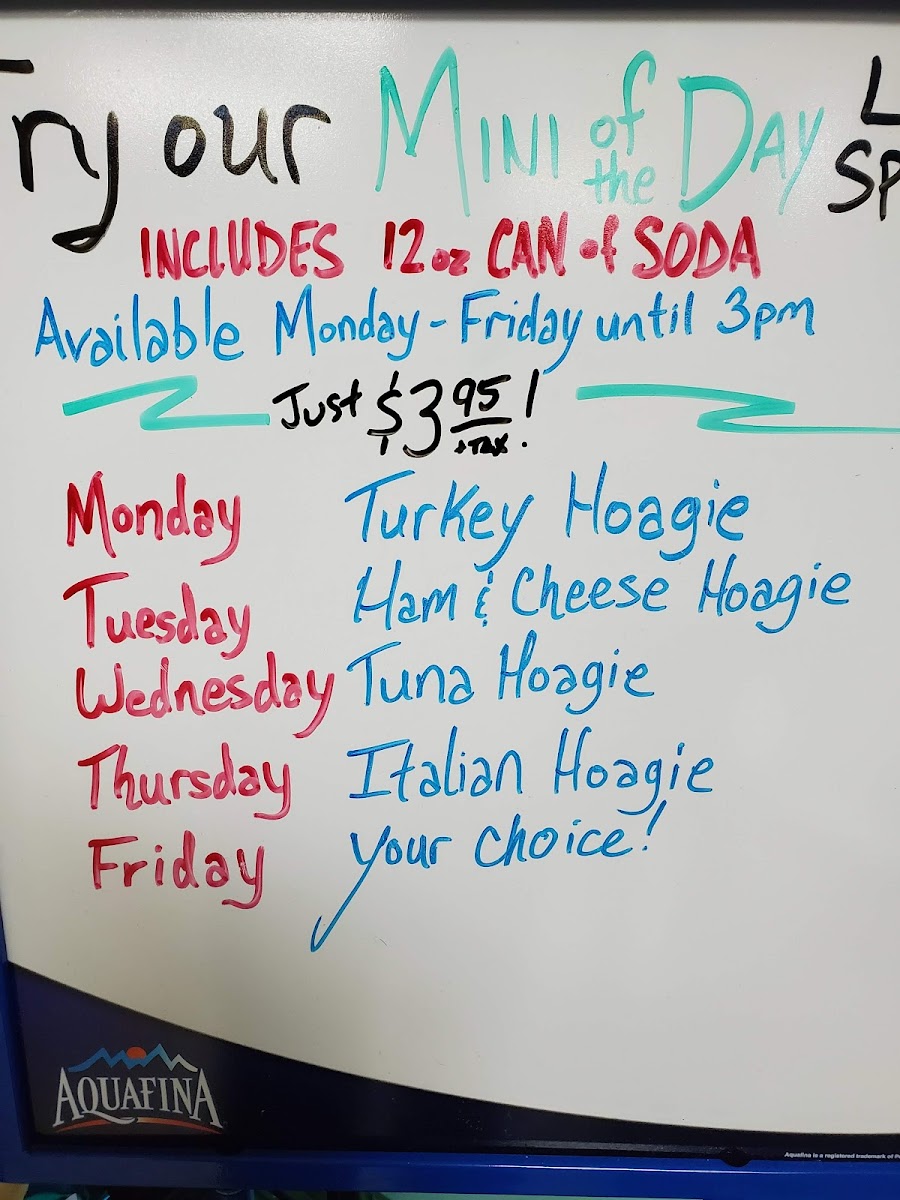 Try our Mini of the Day L
SP
INCLUDES 12oz CAN of SODA
Available Monday - Friday until 3pm
Just $3.95 + TAX!
Monday Turkey Hoagie
Tuesday Ham & Cheese Hoagie
Wednesday Tuna Hoagie
Thursday Italian Hoagie
Friday your choice!
AQUAFINA
Aquafina is a registered trademark of P